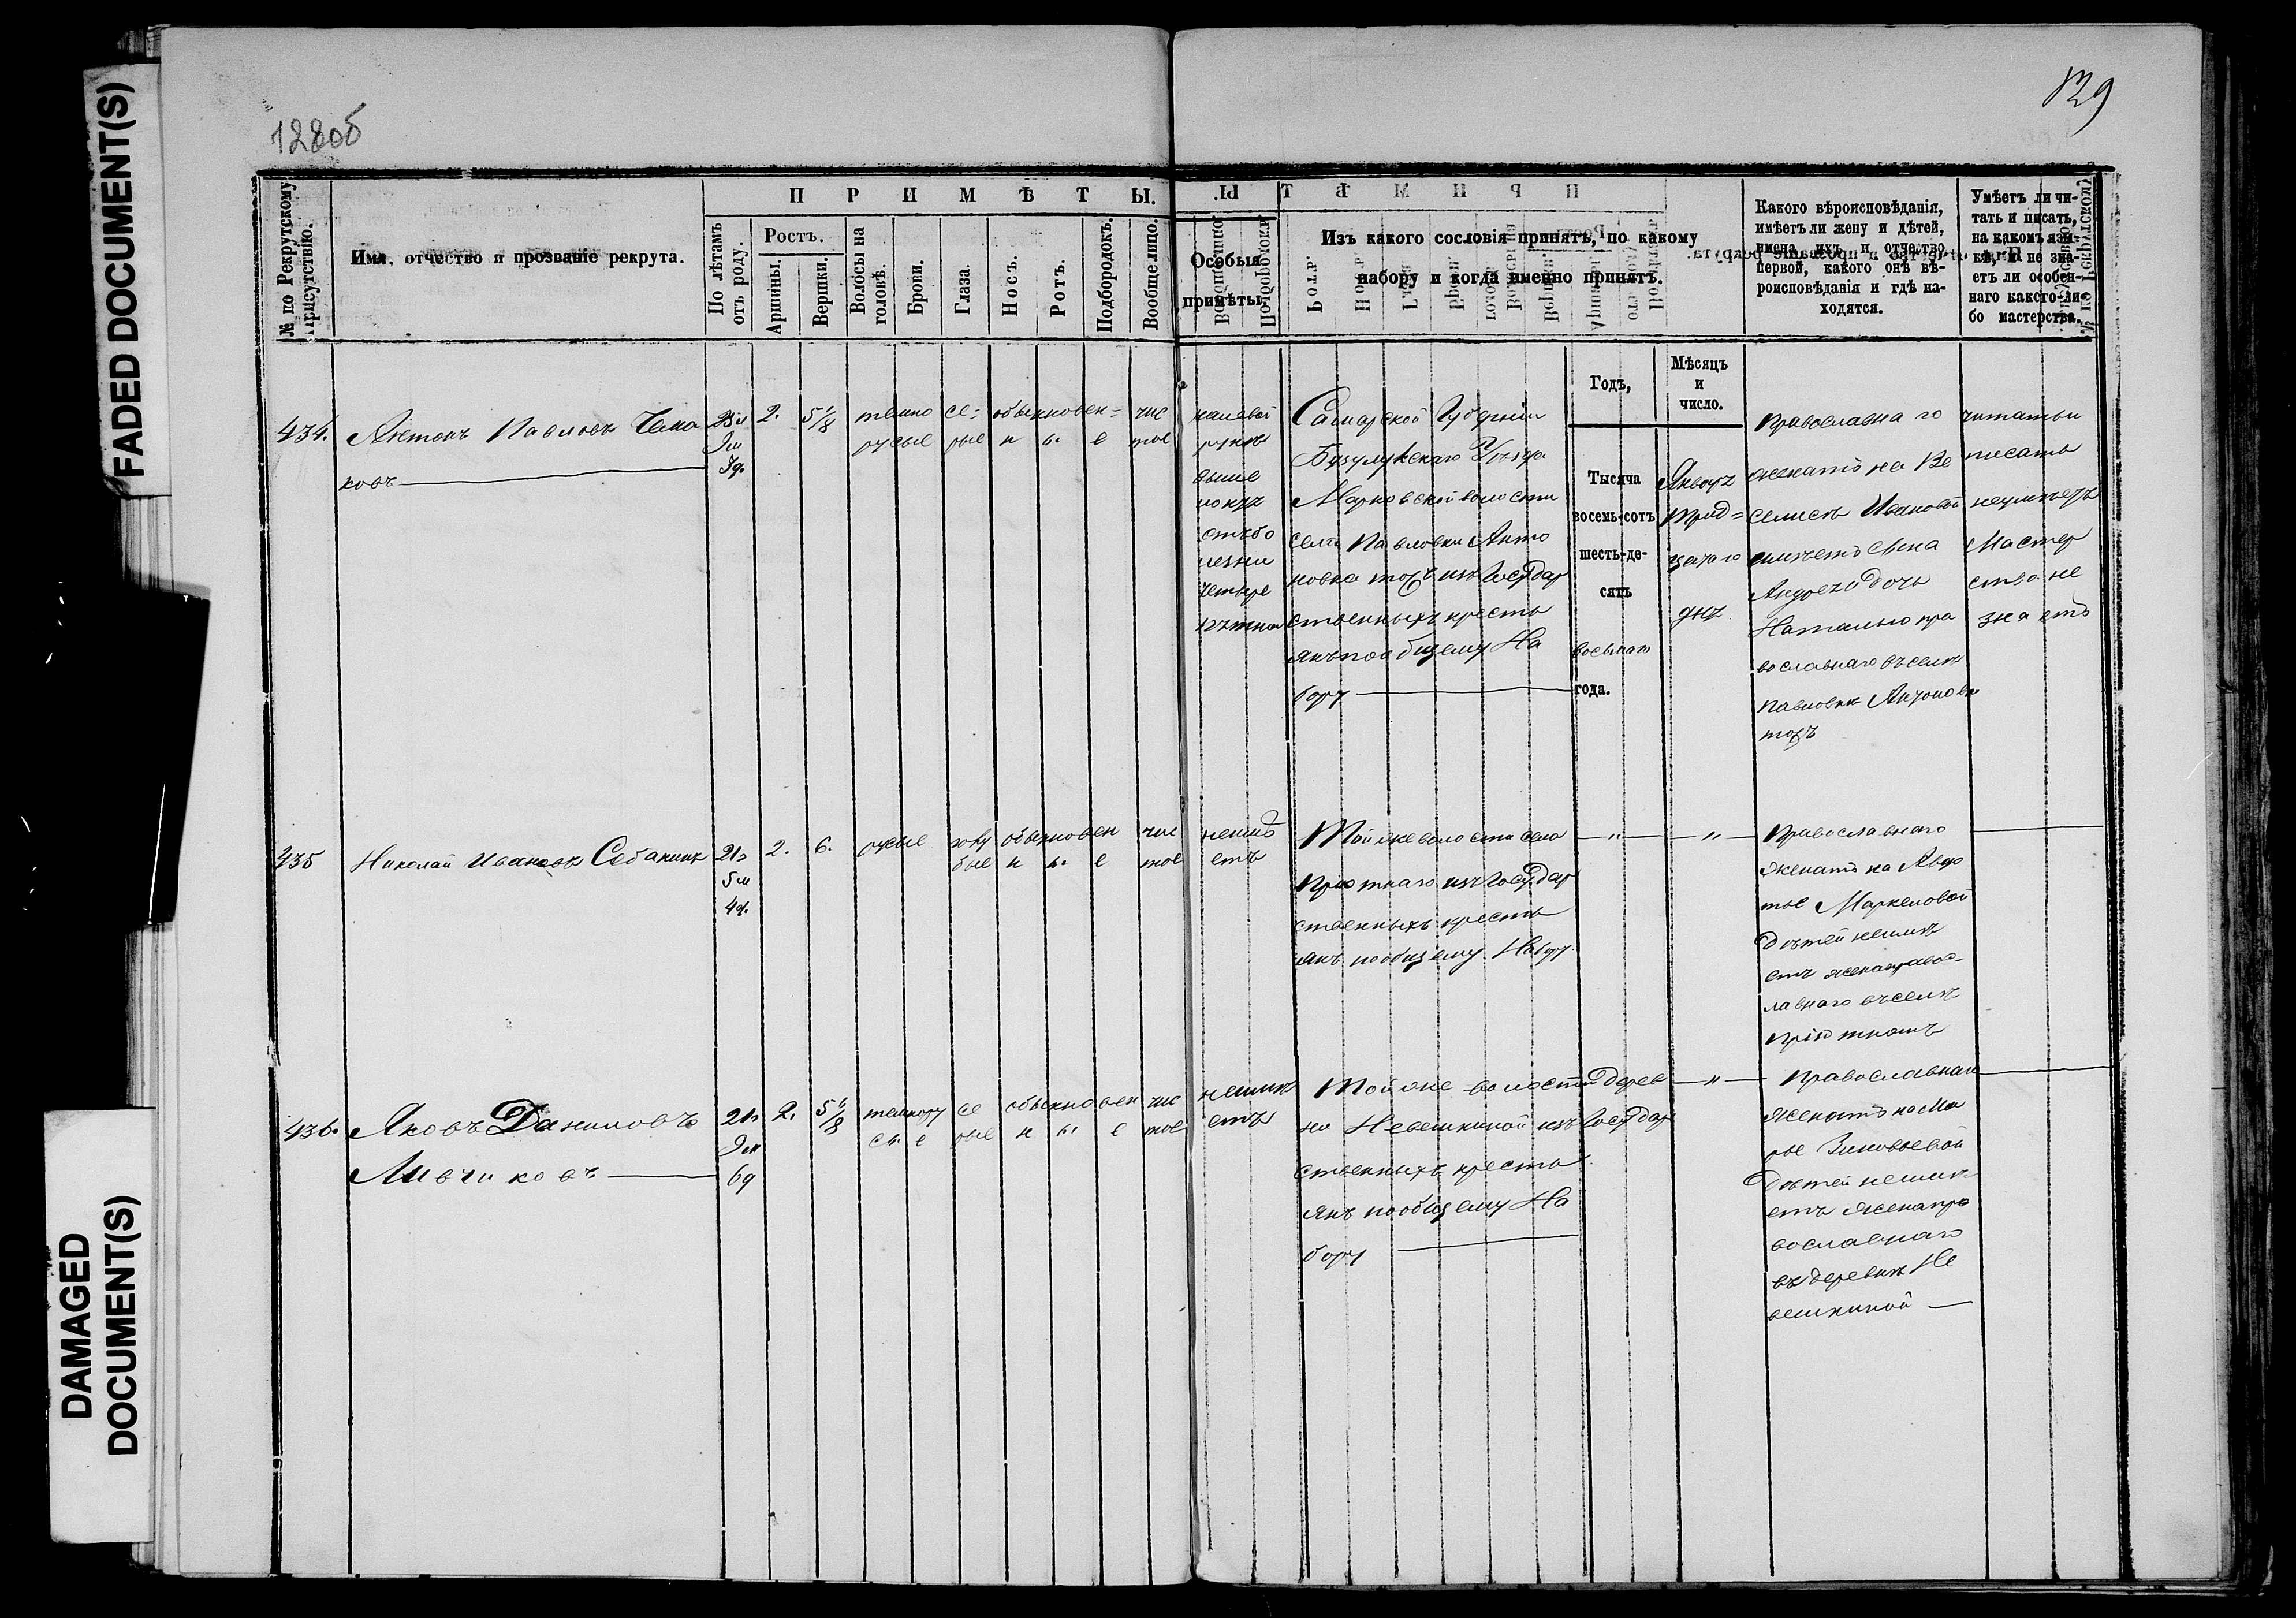 FADED DOCUMENT(S)
DAMAGED
DOCUMENT(S)
128об
129
№ по Рекрутскому Присутствію.
Имя, отчество и прозваніе рекрута.
ПРИМѢТЫ.
По лѣтамъ отъ роду.
Ростъ.
Аршины.
Вершки.
Волосы на головѣ.
Брови.
Глаза.
Носъ.
Ротъ.
Подбородокъ.
Вообще лицо.
Особыя
примѣты.
Изъ какого сословія принятъ, по какому
набору и когда именно принятъ.
Какого вѣроисповѣданія,
имѣетъ ли жену и дѣтей,
имена ихъ и отчество
первой, какого онѣ вѣ-
роисповѣданія и гдѣ на-
ходятся.
Умѣетъ ли чи-
тать и писать,
на какомъ язы-
кѣ, и не зна-
етъ ли особен-
наго какого-ли-
бо мастерства.
Годъ,
Мѣсяцъ
и
число.
434.
Антонъ Павловъ
ковъ
2.
5 1/8
темно
русые
се=
рые
обыкновен=
н ы е
чис
тое
на левой
рукѣ
выше
отъ бо
лезни
четыре
пятна
Самарской Губерніи
Бузулукскаго Уѣзда
Марковской волости
села Павловки Анто
новка тожъ изъ Государ
ственныхъ кресть
янъ по общему На
бору
Тысяча
восемь-сотъ
шесть-де-
сятъ
восьмаго
года.
Января
трид=
цатаго
дня
Православнаго
женатъ на Ве
Ивановой
имѣетъ сына
Андрея и дочь
Наталью пра
вославнаго въ селѣ
Павловкѣ Антоновка
тожъ
читать и
писать
неумѣетъ
Мастер
ства не
знаетъ
435
Николай Ивановъ
21 л
5 м
4 д.
2.
6.
русые
голу
бые
обыкновен
н ы е
чис
тое
неимѣ
етъ
Той же волости села
Пріютнаго изъ Государ
ственныхъ кресть
янъ по общему Набору.
"
"
Православнаго
Женатъ на Авдо
тье Маркеловой
Дѣтей неимѣ
етъ жена правос-
лавнаго въ селѣ
Пріютномъ
436.
Яковъ Даниловъ
Ливчиковъ
21 л
9 м
6 д
2.
темнору
сые
се
рые
обыкновен
н ы е
чис
тое
неимѣ
етъ
Той же волости Дерев
ни Невешкиной изъ Государ
ственныхъ кресть
янъ по общему На
бору
"
Православнаго
Женатъ на Ма
рье Зиновьевой
Дѣтей неимѣ
етъ жена пра
вославнаго
въ деревнѣ Не
вешкиной